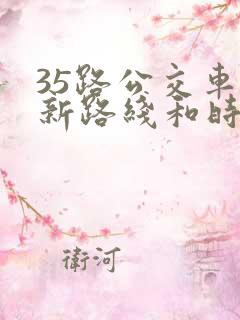 35路公交车
新路綫和時
衛河